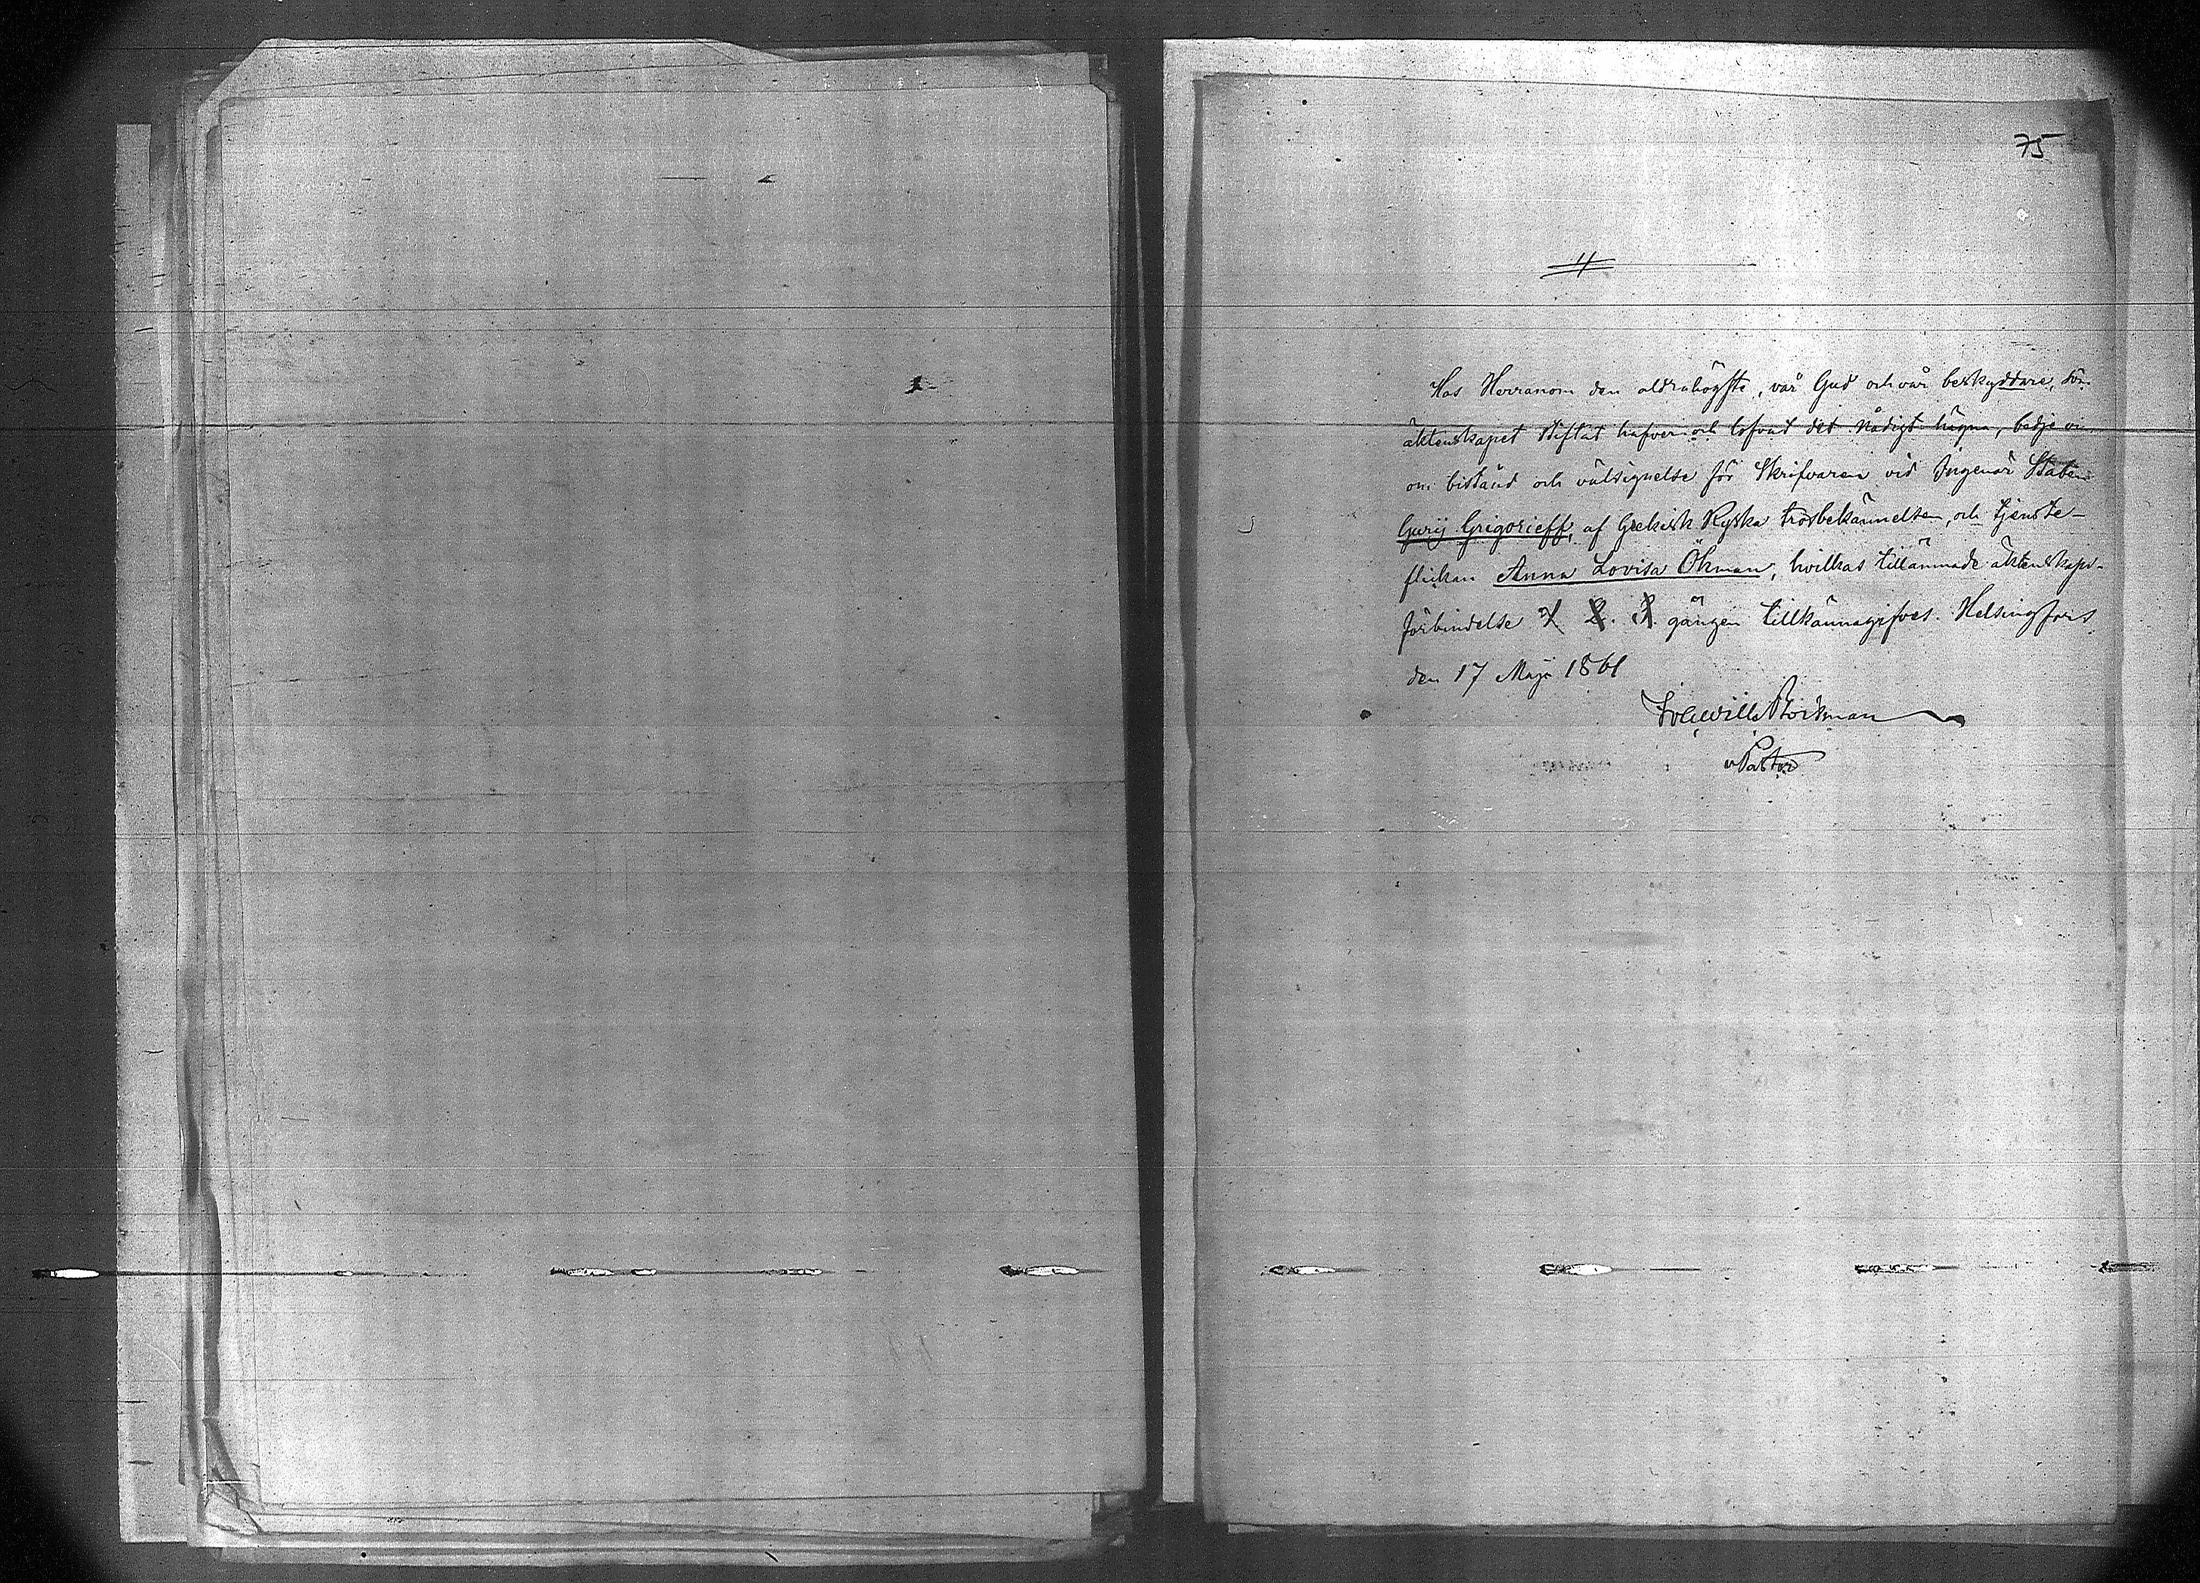 75
11
Hos Herranom den aldrahögste, vår Gud och vår beskyddare, som
äktenskapet stiftat hafver och lofvat det nådigt hägna, bedje vi
om bistånd och välsignelse för Skrifvaren vid Ingeniör Staben
Gurij Grigorieff, af Grekisk Ryska trosbekännelsen, och tjenste-
flickan Anna Lovisa Öhman, hvilkas tillämnade äktenskaps-
förbindelse 1. 2. 3. gången tillkännagifves. Helsingfors
den 17 Maji 1861
Stockman
v Pastor